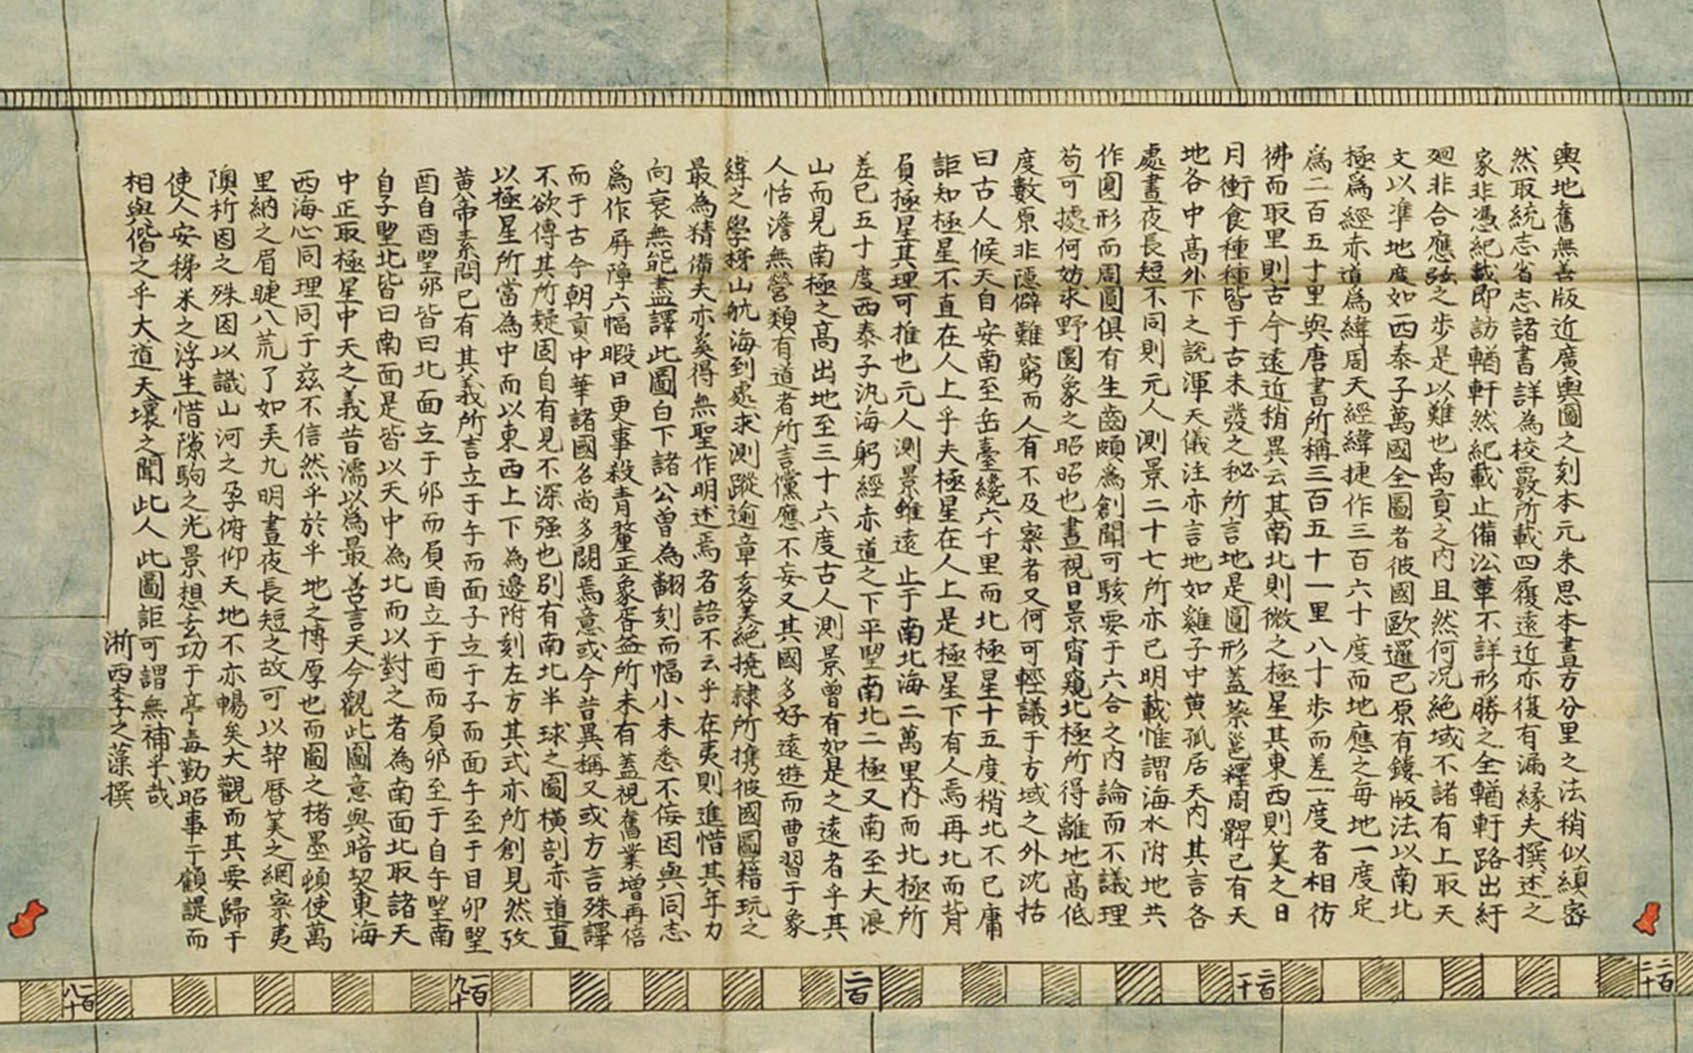 輿地舊無善版近廣輿圖之刻本元朱思本畫方分里之法稍似縝密
然取統志省志諸書詳為校覈所載四履遠近亦復有漏縁夫撰述之
家非憑紀載即訪輶軒然紀載止備沿革不詳形勝之全輶軒路出紆
廻非合應弦之步是以難也禹貢之內且然何况絕域不諸有上取天
文以準地度如西泰子萬國全圖者彼國歐邏巴原有鏤版法以南北
極爲經赤道爲緯周天經緯捷作三百六十度而地應之每地一度定
爲二百五十里與唐書所稱三百五十一里八十步而差一度者相彷
彿而取里則古今遠近稍異云其南北則徵之極星其東西則筭之日
月衝食種種皆于古未發之秘所言地是圓形蓋蔡邕釋周髀已有天
地各中高外下之說渾天儀注亦言地如雞子中黄孤居天內其言各
處晝夜長短不同則元人測景二十七所亦已明載惟謂海水附地共
作圓形而周圓俱有生齒頗爲創聞可駭要于六合之內論而不議理
苟可據何妨求野圖象之昭昭也晝視日景宵窺北極所得離地高低
度數原非隱僻難窮而人有不及察者又何可輕議于方域之外沈括
曰古人候天自安南至岳臺纔六千里而北極星十五度稍北不已庸
詎知極星不直在人上乎夫極星在人上是極星下有人焉再北而背
負極星其理可推也元人測景雖遠止于南北海二萬里內而北極所
差已五十度西泰子汎海躬經赤道之下平望南北二極又南至大浪
山而見南極之高出地至三十六度古人測景曾有如是之遠者乎其
人恬澹無營類有道者所言儻應不妄又其國多好遠遊而曹習于象
緯之學梯山航海到處求測蹤逾章亥筭絕撓隸所攜彼國圖籍玩之
最為精備夫亦奚得無聖作明述焉者語不云乎在夷則進惜其年力
向衰無能盡譯此圖白下諸公曾為翻刻而幅小未悉不佞因與同志
爲作屏障六幅暇日更事殺青釐正象胥益所未有蓋視舊業增再倍
而于古今朝貢中華諸國名尚多闕焉意或今昔異稱又或方言殊譯
不欲傳其所疑固自有見不深强也別有南北半球之圖橫剖赤道直
以極星所當為中而以東西上下為邊附刻左方其式亦所創見然攷
黄帝素問已有其義所言立于午而面子立于子而面午至于目卯望
酉自酉望卯皆曰北面立于卯而負酉立于酉而負卯至于自午望南
自子望北皆曰南面是皆以天中為北而以對之者為南面北取諸天
中正取極星中天之義昔儒以爲最善言天今觀此圖意與暗契東海
西海心同理同于兹不信然乎於乎地之博厚也而圖之楮墨頓使萬
里納之眉睫八荒了如弄九明晝夜長短之故可以挈曆筭之綱察夷
隩析因之殊因以識山河之孕俯仰天地不亦暢矣大觀而其要歸于
使人安稊米之浮生惜隙駒之光景想玄功于亭毒勤昭事于顧諟而
相與偕之乎大道天壤之聞此人此圖詎可謂無補乎哉
浙西李之藻撰
二百二十
二百一十
二百
一百九十
一百八十